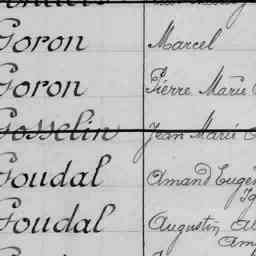 Goron Marcel
Goron Pierre Marie
Gosselin Jean Marie
Goudal Amand Eugène
Goudal Augustin